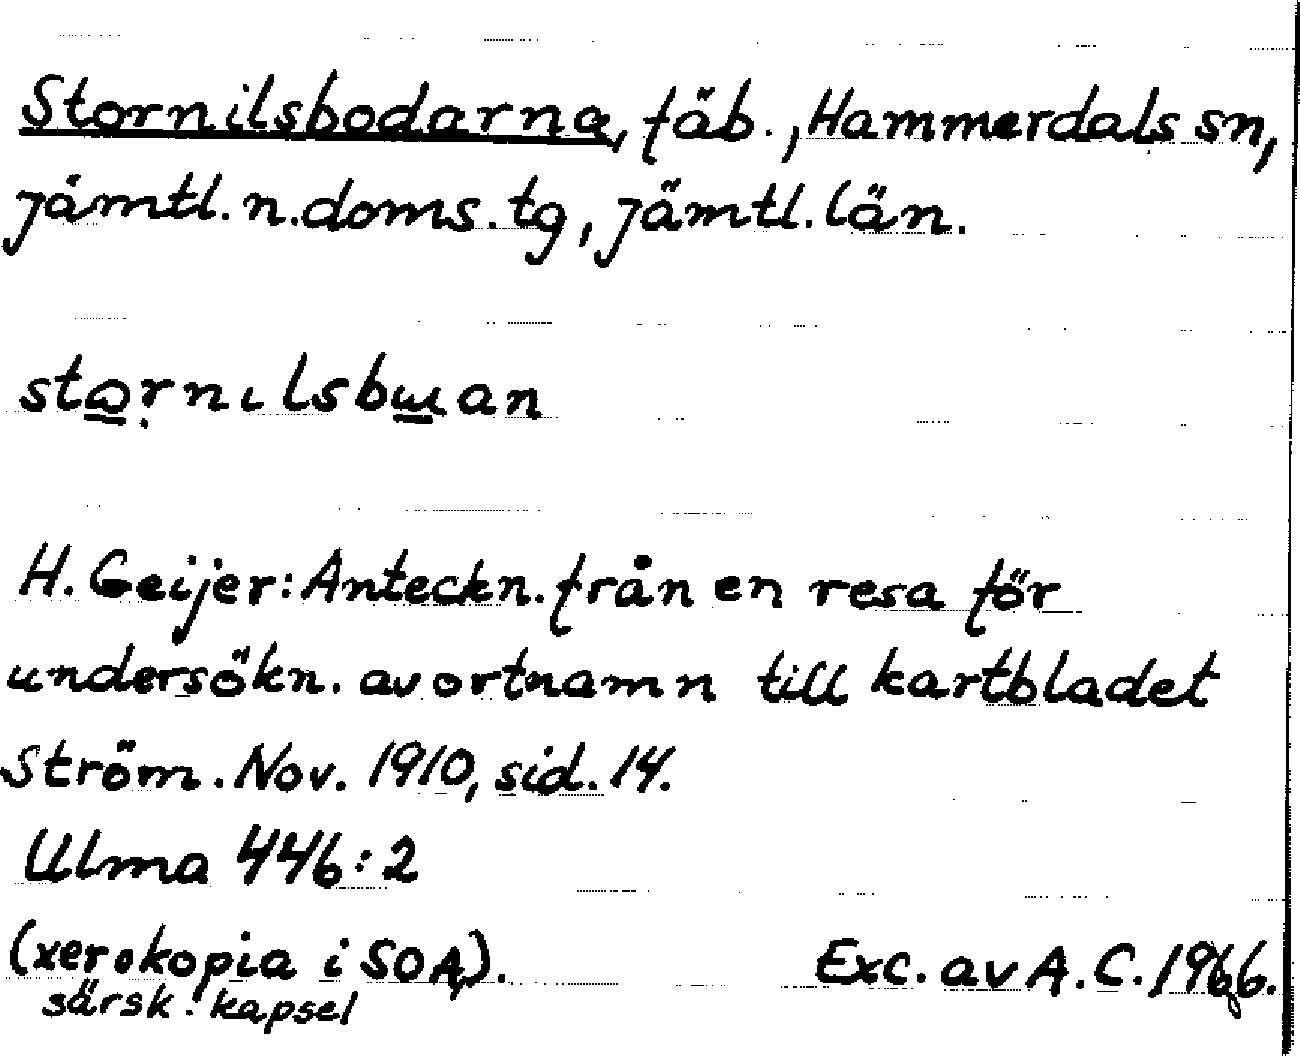 Stornilsbodarna, fäb., Hammerdals sn,
Jämtl. n. doms. tg, Jämtl. län.
sto̲ṛnılsbɯ̲an
H. Geijer: Anteckn. från en resa för
undersökn. av ortnamn till kartbladet
Ström. Nov. 1910, sid. 14.
Ulma 446:2
(xerokopia i SOA,).
särsk. kapsel
Exc. av A. C. 1966.